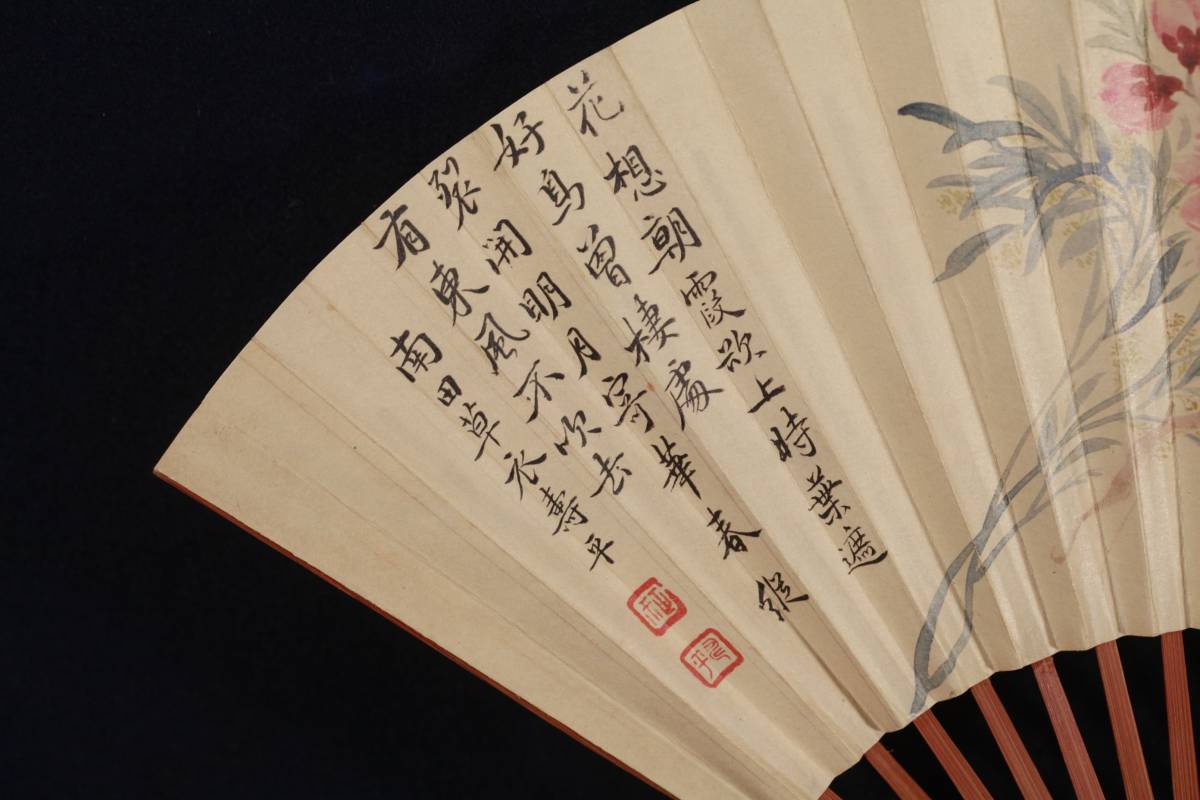 花想朝霞欲上時葉遮
好鳥曾棲處
裂開明月寄華春縱
有東風不吹去
南田草衣壽平